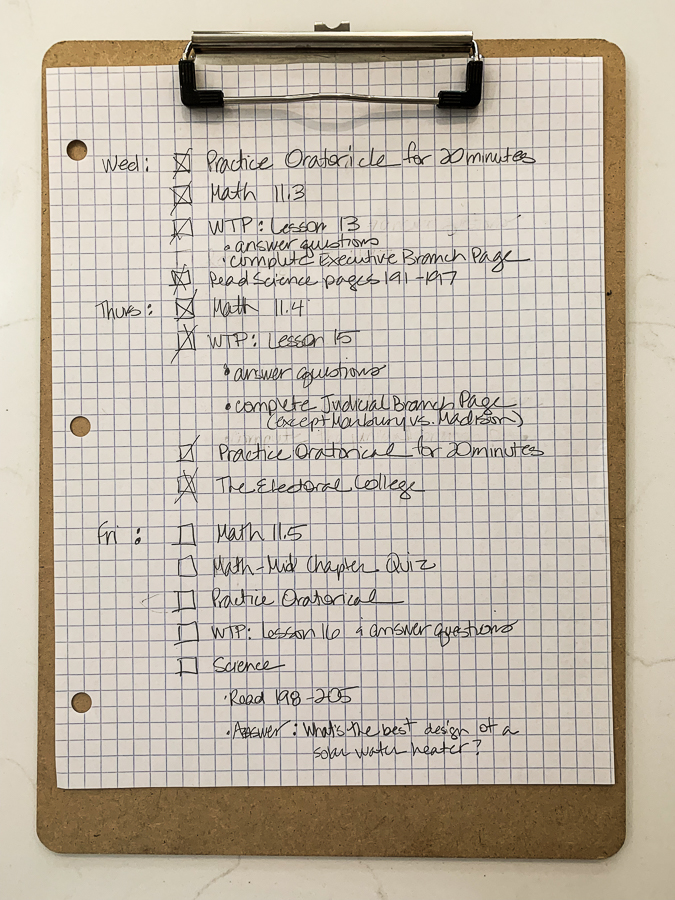 Wed: Practice Oratoricle for 20 minutes
Math 11.3
WTP: Lesson 13
• answer questions
• complete Executive Branch Page
Read Science pages 191-197
Thurs: Math 11.4
WTP: Lesson 15
• answer questions
• complete Judicial Branch Page
(except Marbury vs. Madison)
Practice Oratorical for 20 minutes
The Electoral College
Fri: Math 11.5
Math-Mid Chapter Quiz
Practice Oratorical
WTP: Lesson 16 & answer questions
Science
• Read 198-205
• Answer: What's the best design of a
solar water heater?